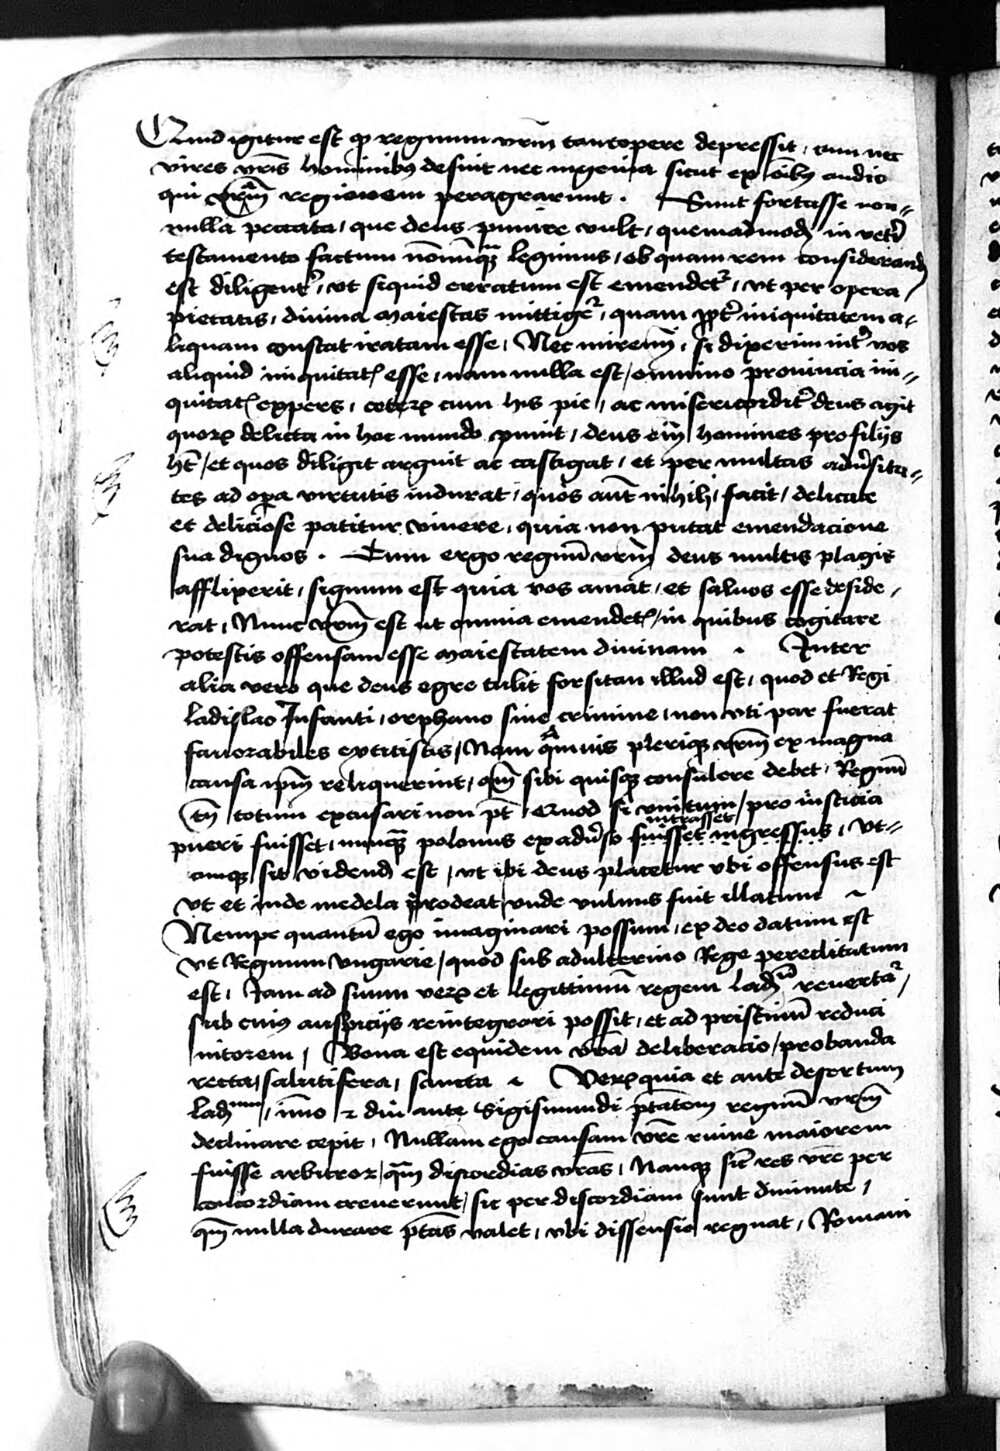 Quid igitur est qȝ regnum vrm̄ tantopere depressit, cum nec
vires vrīs hominibus desint nec ingenia sicut ex oībȝ audio
qui vrām regionem peragrarunt . Sunt fortasse non„
nulla peccata, que deus punire vult, quemadmodȝ in veti
testamento factum nōnūqȝ legimus, ob quam rem considerandȝ
est diligentʼ, vt siquid erratum est emendetʼ, vt per opera
pietatis, diuina maiestas mittigetʼ, quam ꝓptʼ iniquitatem a-
liquam constat iratam esse, Nec miremȝ, si dixerim intʼ vos
aliquid iniquitatʼ esse, nam nulla est, omnino prouincia ini„
quitatʼ expers, ceterꝝ cum his pie, ac misericorditʼ deus agit
quorꝝ delicta in hoc mundo punit, deus em̄ homines pro filijs
hēt, et quos diligit arguit ac castigat, et per multas adūsita„
tes ad oꝑa virtutis indurat, quos aūt nihili facit, delicate
et deliciose patitur viuere, quia non putat emendacione
sua dignos . Cum ergo regnū vrm̄ deus multis plagis
afflixerit, signum est quia vos amat, et saluos esse deside,
rat, Nunc vrm̄ est ut omnia emendetʼ, in quibus cogitare
potestis offensam esse maiestatem diuinam . Inter
alia vero que deus egre tulit forsitan illud est, quod et Regi
ladislao Infanti, orphano sine crimine, non vti par fuerat
fauorabiles extitistis, Nam qm̄uis pleriqȝ vrm̄ ex magna
causa ipm̄ reliquerint, qm̄ sibi quisqȝ consulere debet, Regnū
tn̄ totum excusari non pt̄, Quod si vnitum, pro iusticia
pueri fuisset, nunqȝ polonus ex adūso intrasset fuisset ingressus, Vt-
cumqȝ sit videndȝ est, vt ibi deus placetur vbi offensus est
vt et inde medela prodeat vnde vulnus fuit illatum
Nempe quantū ego imaginari possum, ex deo datum est
vt Regnum vngarie, quod sub adulterino Rege pereclitatum
est, Iam ad suum verꝝ et legittimū regem ladm̄ revertatʼ,
sub cuius auspicijs reintegrari possit, et ad pristinū reduci
nitorem, Bona est equidem vrā deliberacio, probanda
recta, salutifera, sancta . Verꝝ quia et ante desertum
ladmum, īmo ⁊ diu ante Sigismundi pt̄atem regnū vrm̄
declinare cepit, Nullam ego causam vrē ruine maiorem
fuisse arbitror, qm̄ discordias vrās, Namqȝ sic̄ res vrē per
concordiam creuerunt, sic per discordiam sunt diminute,
qm̄ nulla durare pt̄as valet, vbi dissensio regnat, Romani